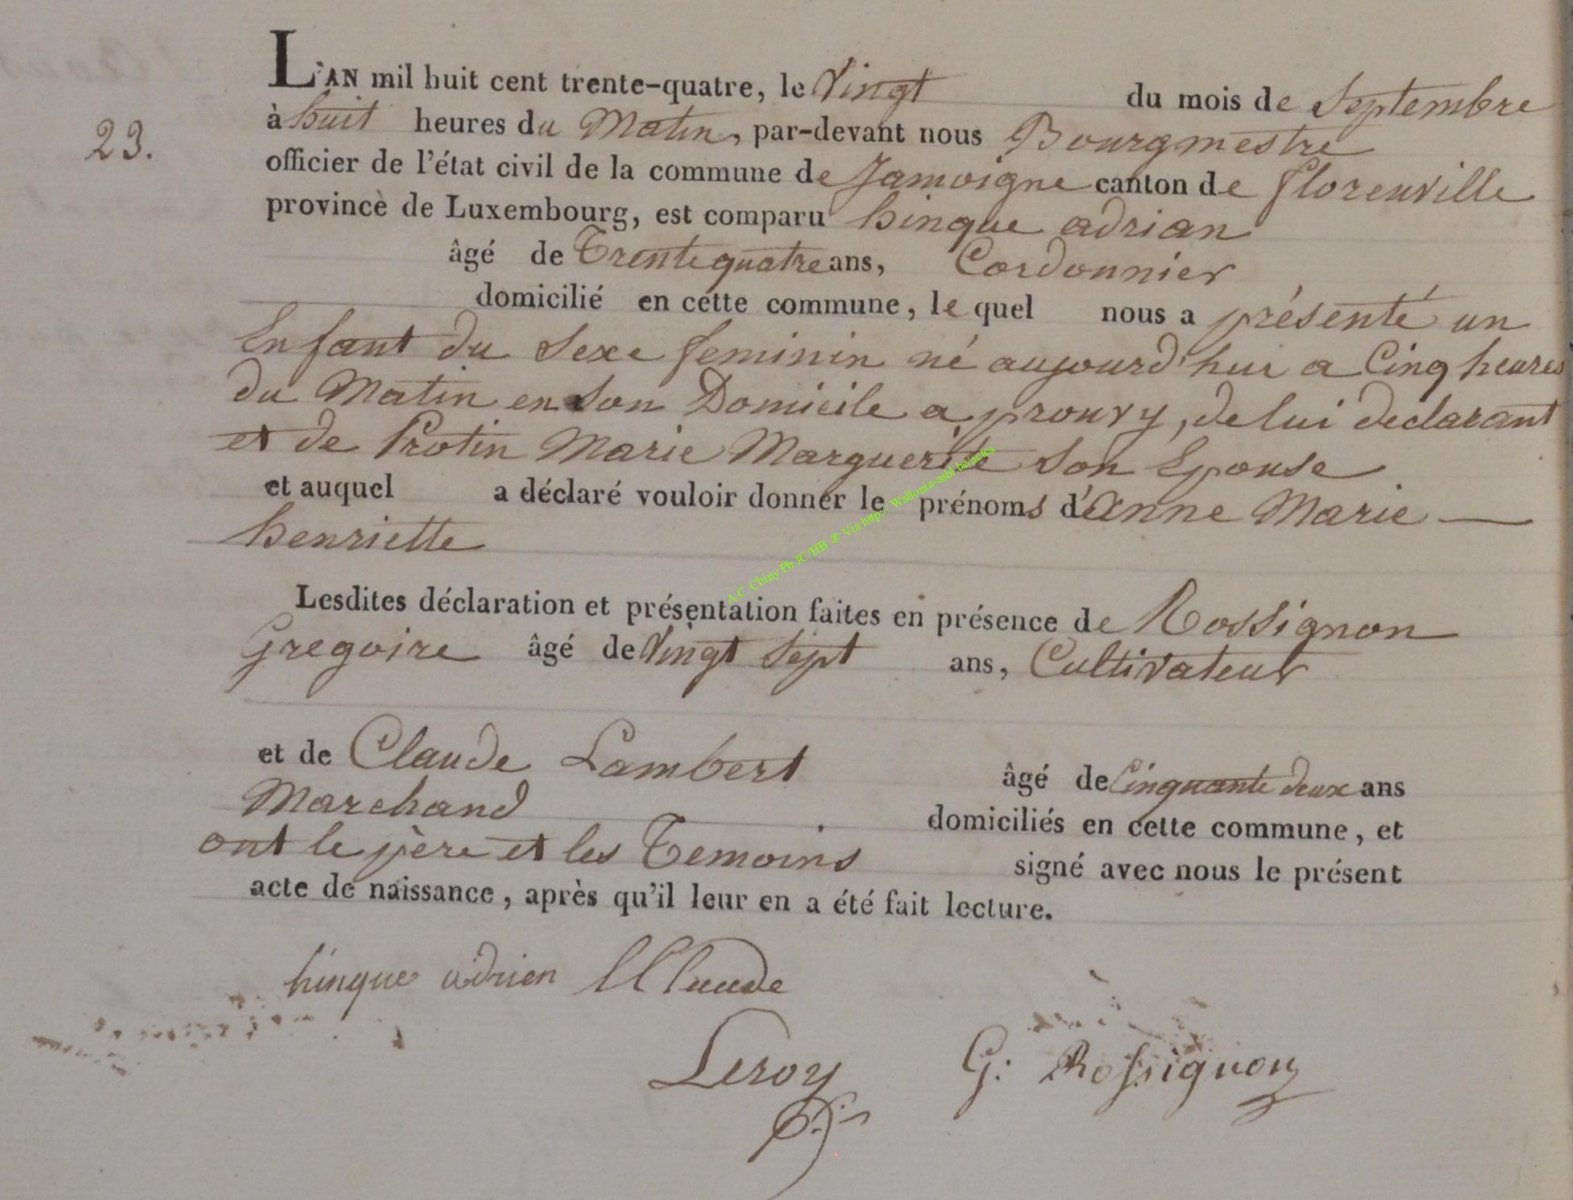 L'AN mil huit cent trente-quatre, le Vingt du mois de Septembre
23.
à huit heures du Matin, par-devant nous Bourgmestre
officier de l'état civil de la commune de Jamoigne canton de florenville
province de Luxembourg, est comparu hinque adrian
âgé de Trente quatre ans, Cordonnier
domicilié en cette commune, le quel nous a présenté un
Enfant du Sexe feminin né aujourd'hui a Cinq heures
du Matin en Son Domicile a prouvy, de lui declarant
et de Protin Marie Marguerite Son Epouse
et auquel a déclaré vouloir donner le prénoms d'anne Marie
henriette
Lesdites déclaration et présentation faites en présence de Rossignon
Gregoire âgé de Vingt Sept ans, Cultivateur
et de Claude Lambert âgé de Cinquante deux ans
Marchand domiciliés en cette commune, et
ont le père et les Temoins signé avec nous le présent
acte de naissance, après qu'il leur en a été fait lecture.
hinque adrien Claude
Leroy G: Rossignon
A.C. Chiny Ph JC/HB ® Via http: